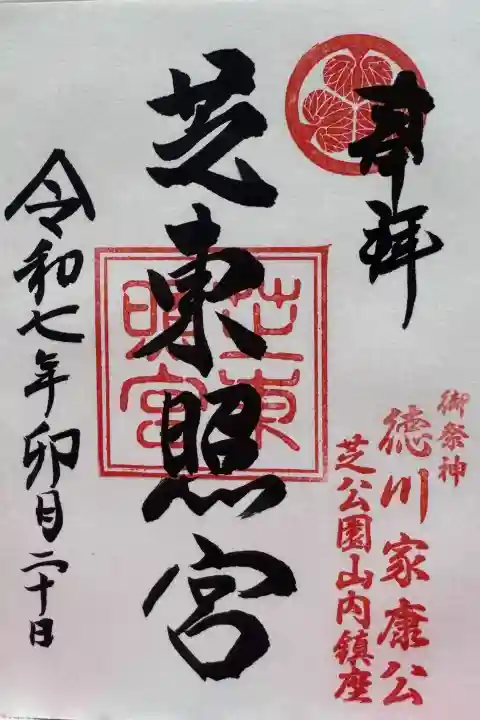 奉拝
御祭神
徳川家康公
芝公園山内鎮座
芝東照宮
芝東
照宮
令和七年卯月二十日